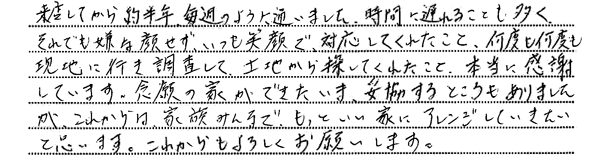 来店してから約半年、毎週のように通いました。時間に遅れることも多く
それでも嫌な顔せず、いつも笑顔で、対応してくれたこと、何度も何度も
現地に行き調査して、土地から探してくれたこと、本当に感謝
しています。念願の家ができたいま、妥協するところもありました
が、これからは家族みんなで、もっといい家にアレンジしていきたい
と思います。これからもよろしくお願いします。